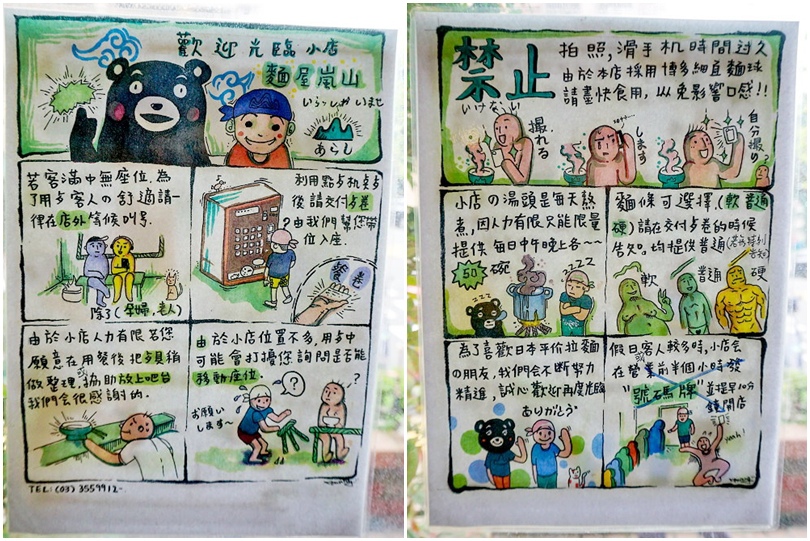 歡迎光臨小店
麵屋嵐山
いらっしゃいませ
あらし
若客滿中無座位.為
了用步客人の舒適請一
律在店外等候叫号.
除了(孕婦,老人)
利用點步机点步
後請交付步卷
由我們幫您帶
位入座.
餐卷
由於小店人力有限若您
願意在用餐後把步具稍
做整理,或協助放上吧台
我們会很感謝的.
由於小店位置不多,用步中
可能會打擾您詢問是否能
移動座位.
お願い
します~
?
TEL:(03)3559912-
禁止
拍照,滑手机時間过久
由於本店採用博多細直麵球
請盡快食用,以免影響口感!!
いけない
撮れる
します
自分撮り
?
小店の湯頭是每天熬
煮,因人力有限只能限量
提供每日中午晚上各~~
50碗
zzz
zzz
麵條可選擇.(軟 普通
硬)請在交付步卷的時候
告知.均提供普通
軟
普通
硬
為了喜歡日本平价拉麵
の朋友,我們会不斷努力
精進,誠心歡迎再度光臨
ありがとう
假日客人較多時,小店会
在營業前半個小時發
"號碼牌"並提早10分
鐘開店
yeah!